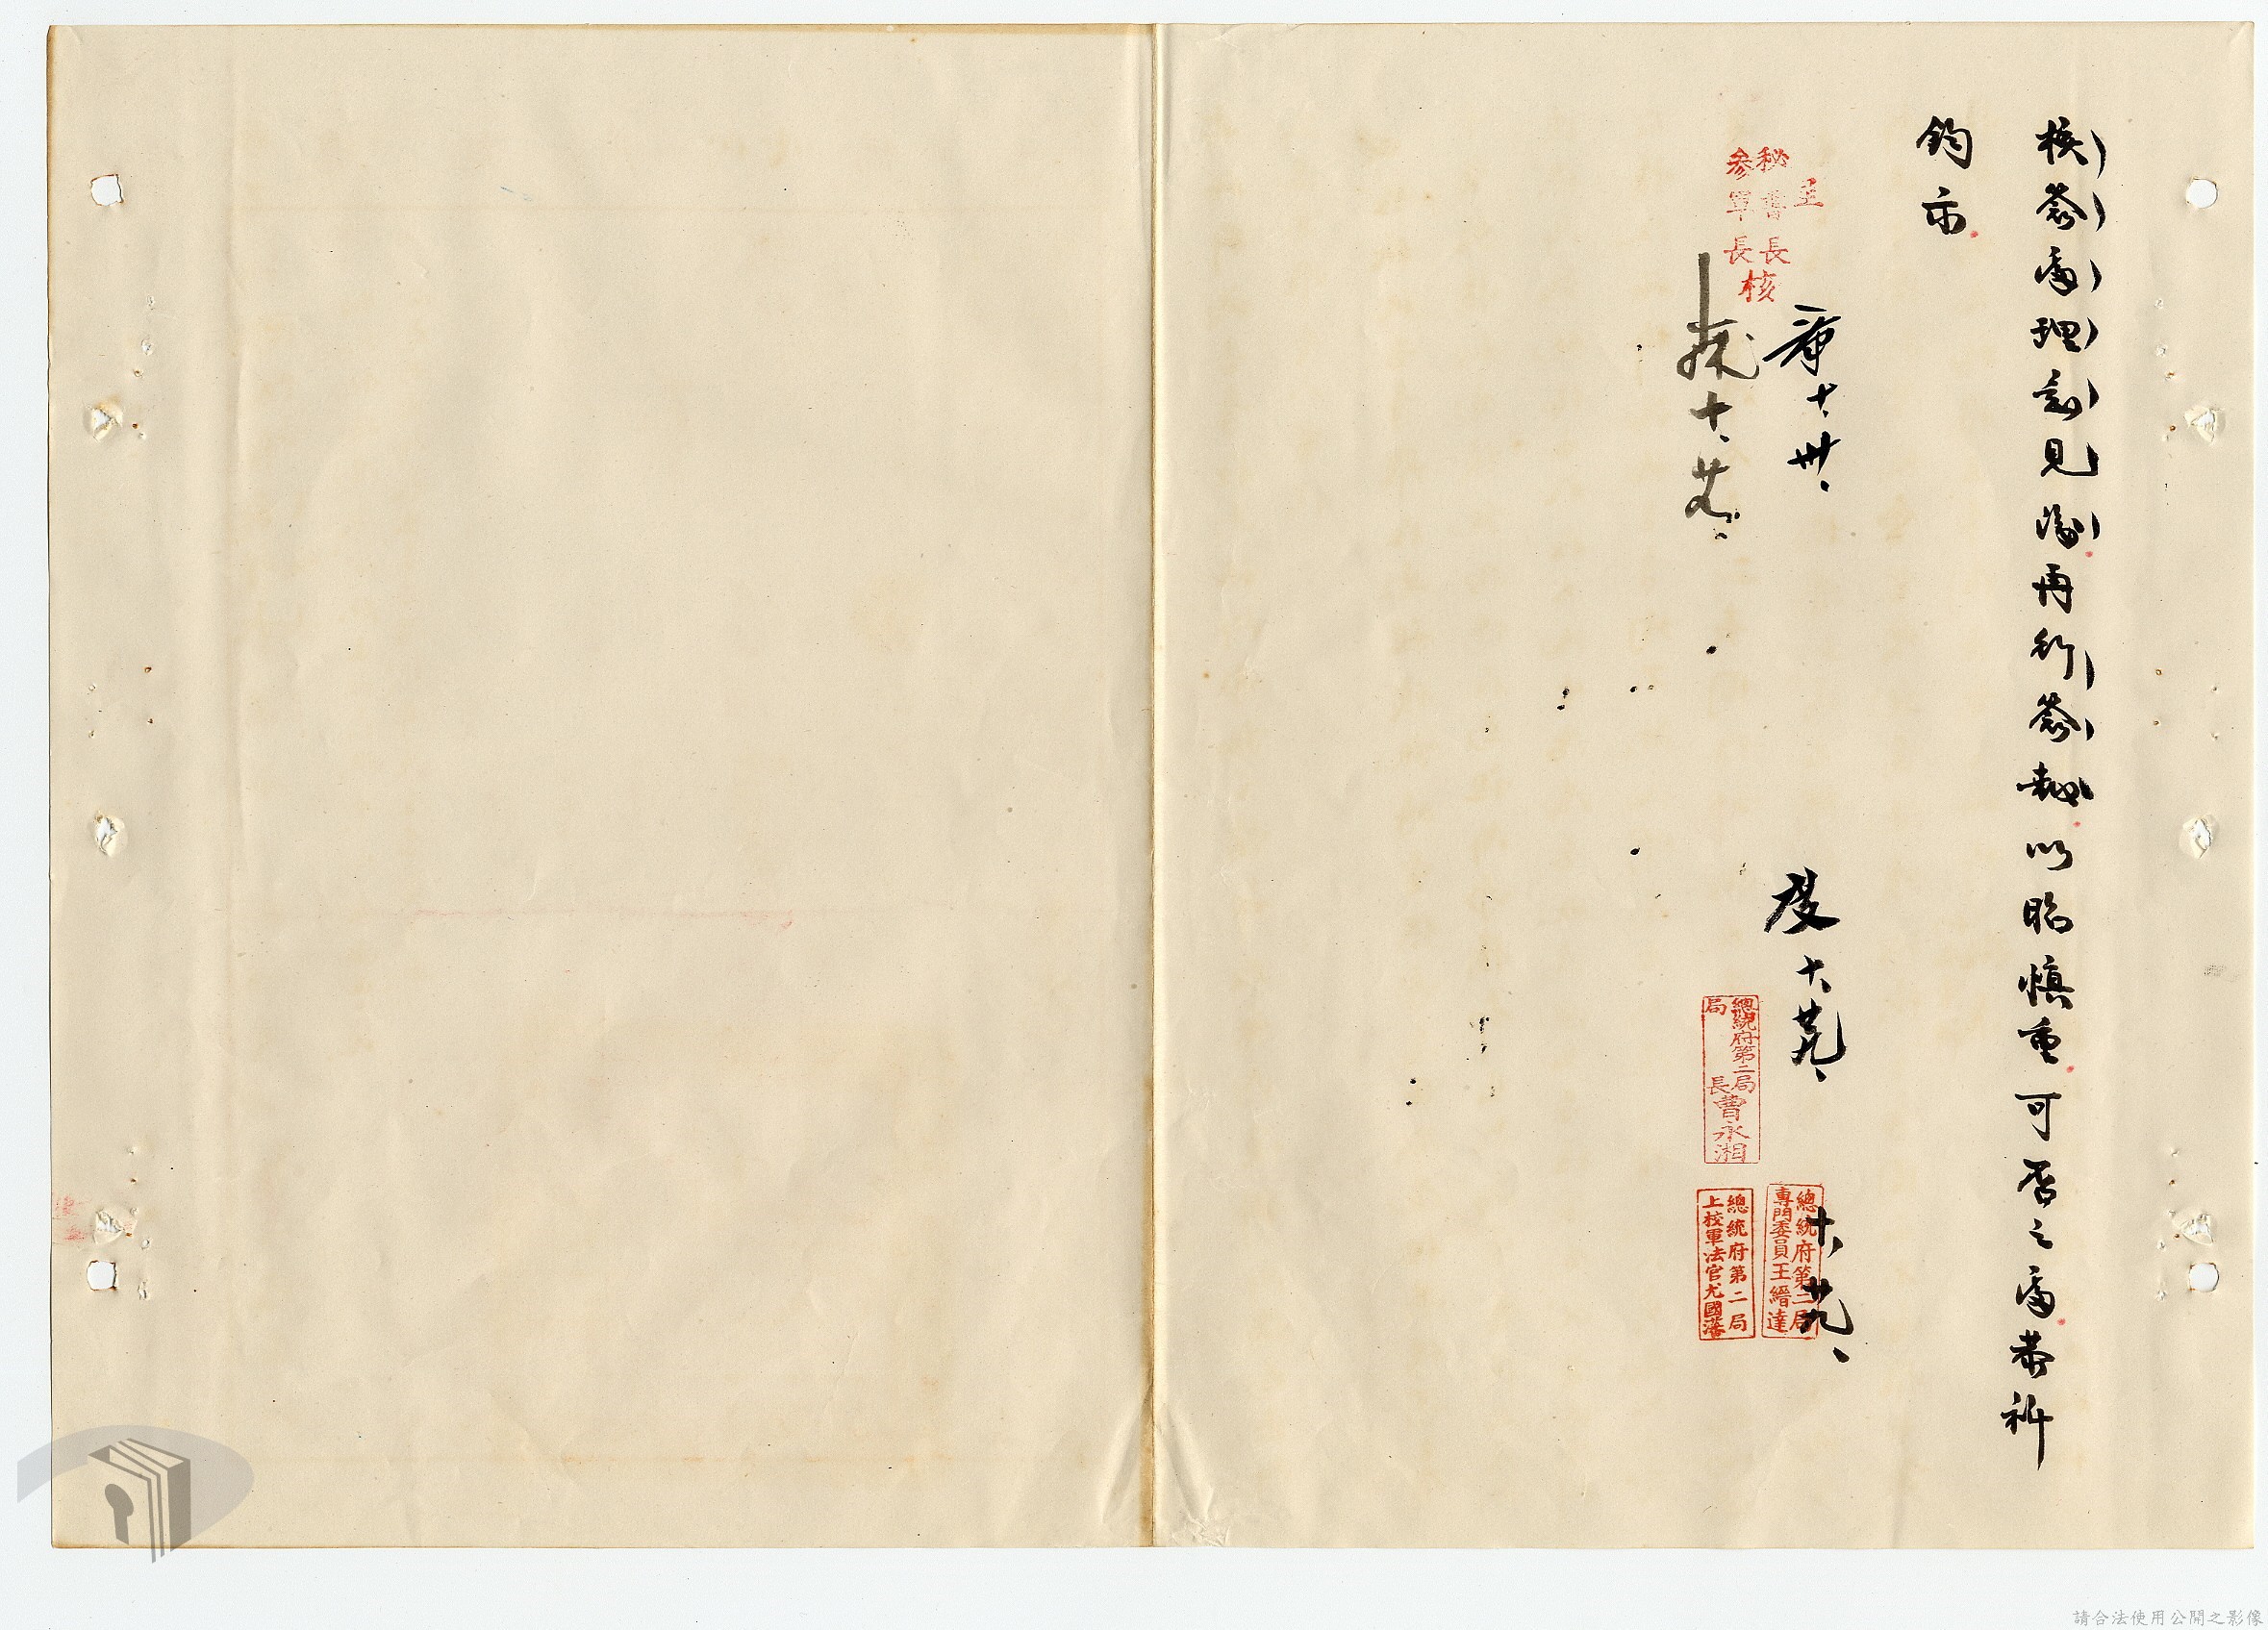 核簽處理意見後再行簽報以昭慎重可否之處恭祈
鈞示
呈
秘書長
參軍長
核
十、卅、
十、廿九、
十、廿九、
總統府第二局
局長曹永湘
十、廿九、
總統府第二局
專門委員王縉達
總統府第二局
上校軍法官尤國藩
請合法使用公開之影像